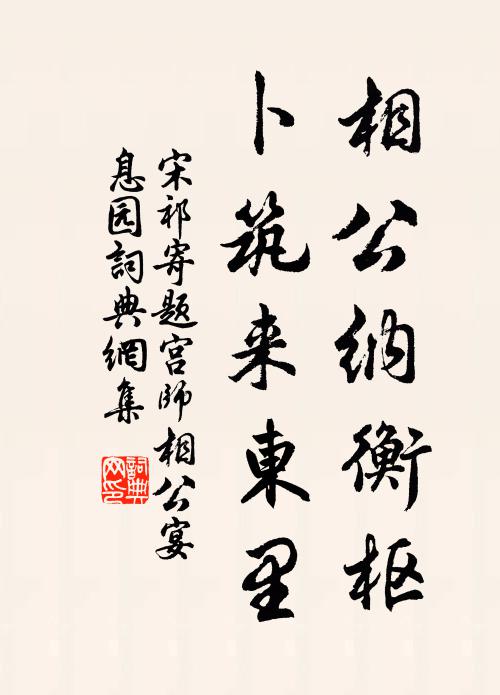 相公纳衡枢
卜筑来東里
宋祁寄题宫師相公宴
息园詞典網集
詞典
网印